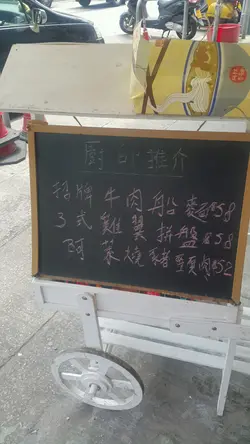 廚師推介
招牌牛肉船麵$58
3式雞翼拼盤$58
阿菜燒豬頸肉$52